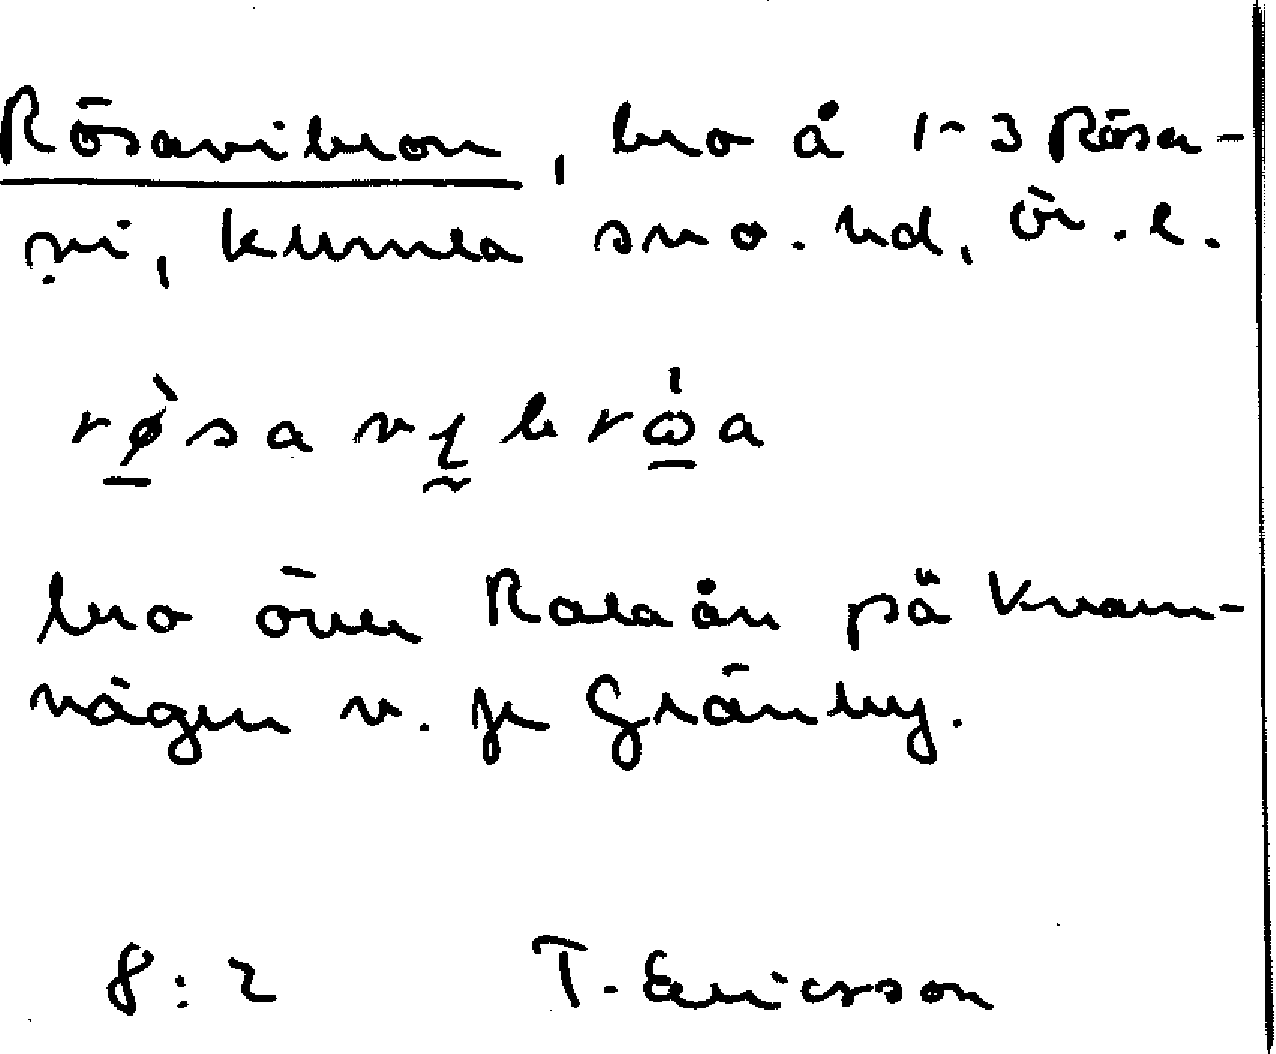 Rösavibron, bro å 1-3 Rösa-
vi, Kumla sn o. hd, Ör. l.
rø̀sa vi̯brω̍a
bro över Ralaån på Kvarn-
vägen v. fr Gränby.
8:2 T. Ericsson